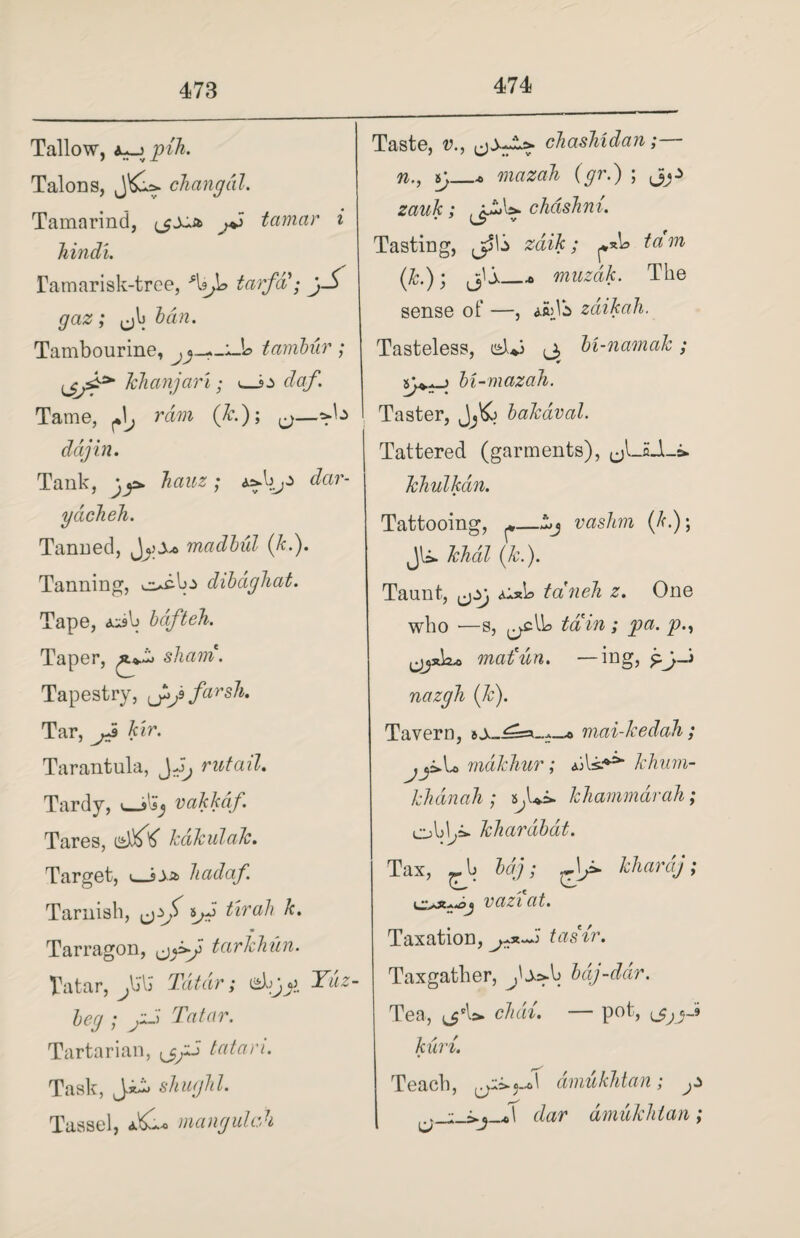 473
Tallow, پیه píh.
Talons, چنگال changál.
Tamarind, تمر هندی tamar i
hindi.
Tamarisk-tree, طرفاء tarfá'; گز
gaz; بان bán.
Tambourine, طنبور tambúr;
خنجری khanjari; دف daf.
Tame, رام rám (k.); داجن
dájin.
Tank, حوض hauz; دریاچه dar-
yácheh.
Tanned, مدبول madbúl (k.).
Tanning, دباغت dibághat.
Tape, بافته báfteh.
Taper, شمع sham'.
Tapestry, فرش farsh.
Tar, قیر kír.
Tarantula, رتیل rutail.
Tardy, وقاف vakkáf.
Tares, کاکلک kákulak.
Target, هدف hadaf.
Tarnish, تیره کردن tírah k.
Tarragon, ترخون tarkhún.
Tatar, تاتار Tátár; یوزبك Yúz-
beg; تتر Tatar.
Tartarian, تتری tatari.
Task, شغل shughl.
Tassel, منگله manguleh
474
Taste, v., چشیدن chashídan;—
n., مزه mazah (gr.); ذوق
zauk; چاشنی cháshní.
Tasting, ذائق záik; طعم ta'm
(k.); مذاق muzák. The
sense of —, ذایقه záikah.
Tasteless, بی نمك bí-namak;
بیمزه bí-mazah.
Taster, بکاول bakával.
Tattered (garments), خلقان
khulkán.
Tattooing, وشم vashm (k.);
خال khál (k.).
Taunt, طعنه زدن ta'neh z. One
who —s, طاعن tá'in; pa. p.,
مطعون mat'ún. —ing, نزغ
nazgh (k).
Tavern, میکده mai-kedah;
ماخور mákhur; خمخانه khum-
khánah; خماره khammárah;
خرابات kharábát.
Tax, باج báj; خراج kharáj;
وضیعت vazí'at.
Taxation, تسعیر tas'ír.
Taxgather, باجدار báj-dár.
Tea, چائی chái. — pot, قوری
kúrí.
Teach, آموختن ámúkhtan; در
آموختن dar ámúkhtan;